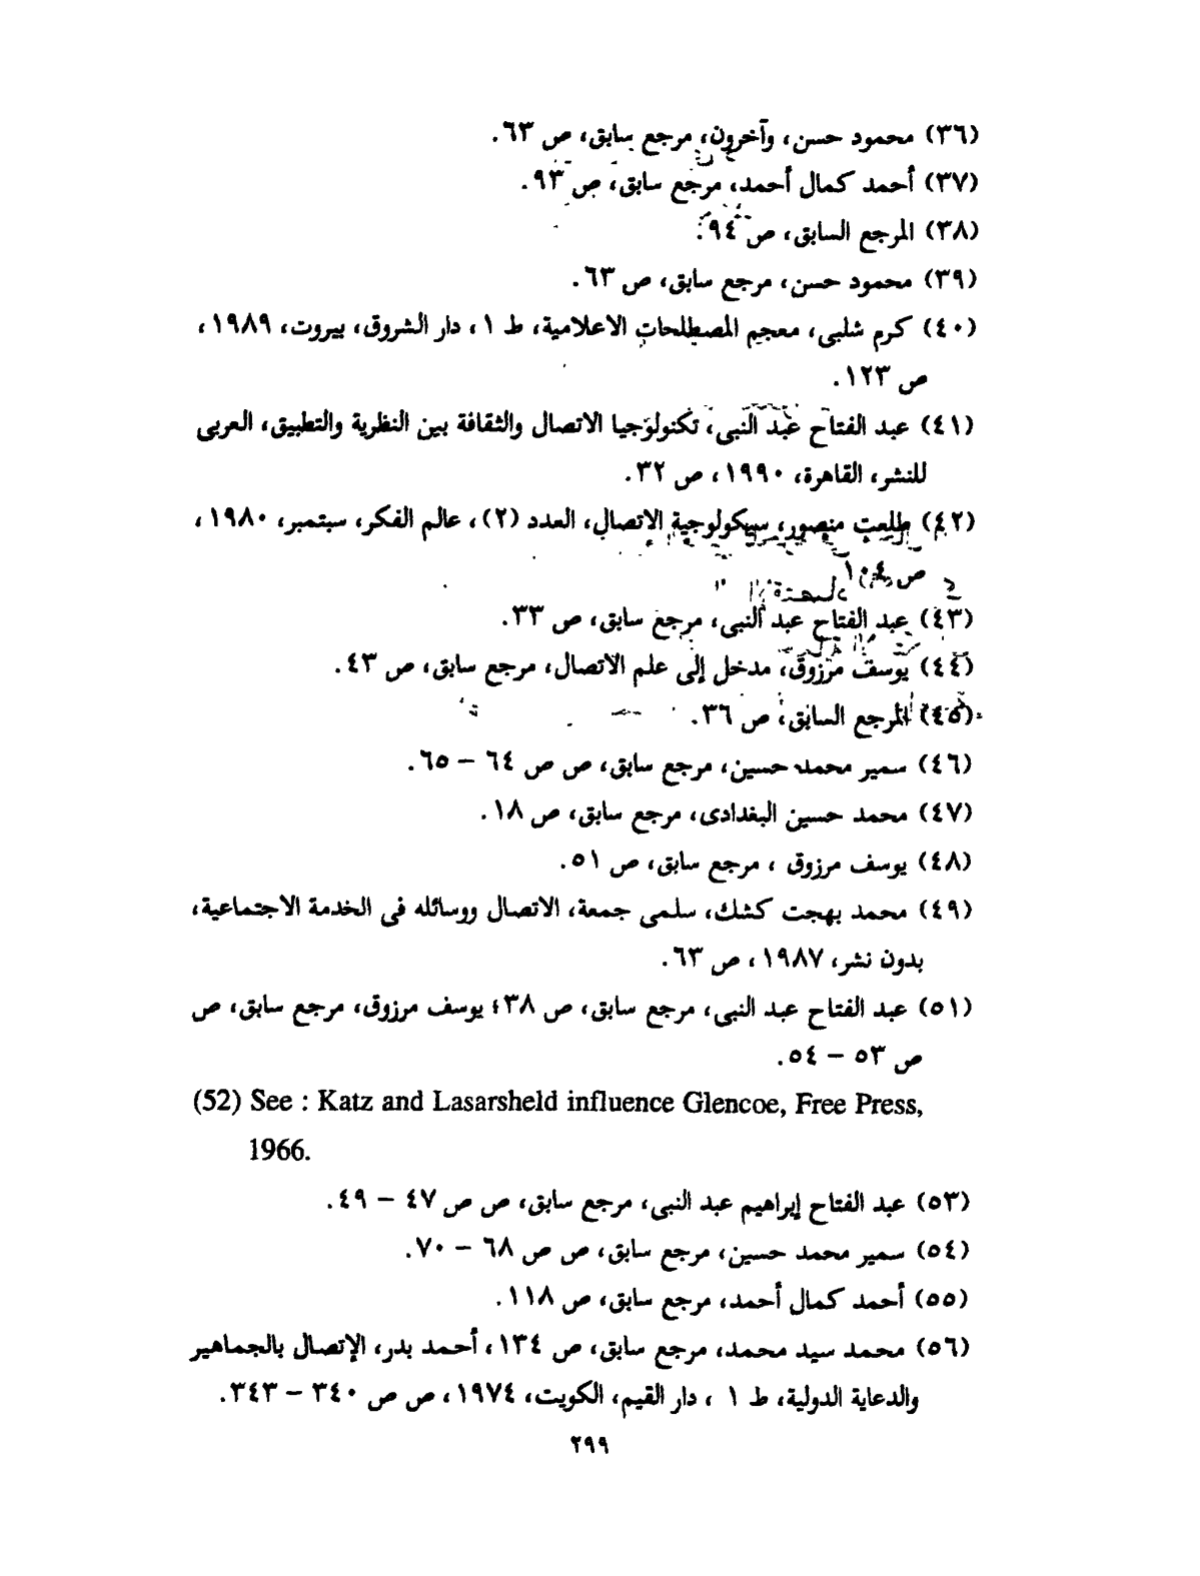 (٣٦) محمود حسن، وآخرون، مرجع سابق، ص ٦٣.
(٣٧) أحمد كمال أحمد، مرجع سابق، ص ٩٣.
(٣٨) المرجع السابق، ص ٩٤.
(٣٩) محمود حسن، مرجع سابق، ص ٦٣.
(٤٠) كرم شلبى، معجم المصطلحات الاعلامية، ط ١، دار الشروق، بيروت، ١٩٨٩،
ص ١٢٣.
(٤١) عبد الفتاح عبد النبى، تكنولوجيا الاتصال والثقافة بين النظرية والتطبيق، العربى
للنشر، القاهرة، ١٩٩٠، ص ٣٢.
(٤٢) طلعت منصور، سيكولوجية الاتصال، العدد (٢)، عالم الفكر، سبتمبر، ١٩٨٠،
ص ١٠٤
(٤٣) عبد الفتاح عبد النبى، مرجع سابق، ص ٣٣.
(٤٤) يوسف مرزوق، مدخل إلى علم الاتصال، مرجع سابق، ص ٤٣.
(٤٥) المرجع السابق، ص ٣٦.
(٤٦) سمير محمد حسين، مرجع سابق، ص ص ٦٤ – ٦٥.
(٤٧) محمد حسين البغدادى، مرجع سابق، ص ١٨.
(٤٨) يوسف مرزوق ، مرجع سابق، ص ٥١.
(٤٩) محمد بهجت كشك، سلمى جمعة، الاتصال ووسائله فى الخدمة الاجتماعية،
بدون نشر، ١٩٨٧، ص ٦٣.
(٥١) عبد الفتاح عبد النبى، مرجع سابق، ص ٣٨؛ يوسف مرزوق، مرجع سابق، ص
ص ٥٣ – ٥٤.
(52) See : Katz and Lasarsheld influence Glencoe, Free Press,
1966.
(٥٣) عبد الفتاح إبراهيم عبد النبى، مرجع سابق، ص ص ٤٧ – ٤٩.
(٥٤) سمير محمد حسين، مرجع سابق، ص ص ٦٨ – ٧٠.
(٥٥) أحمد كمال أحمد، مرجع سابق، ص ١١٨.
(٥٦) محمد سيد محمد، مرجع سابق، ص ١٣٤، أحمد بدر، الإتصال بالجماهير
والدعاية الدولية، ط ١ ، دار القيم، الكويت، ١٩٧٤، ص ص ٣٤٠ – ٣٤٣.
٢٩٩